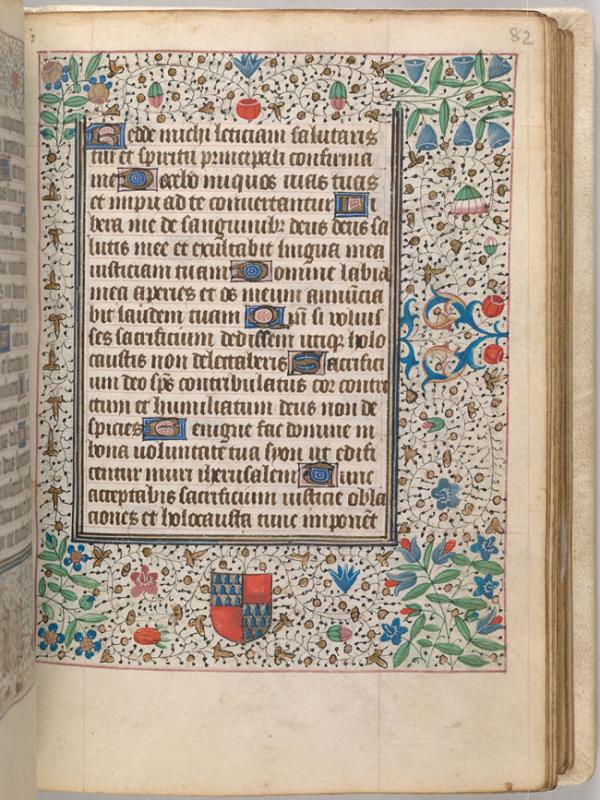 82
Redde michi leticiam salutaris
tui et spiritu principali confirma
me Docebo iniquos uias tuas
et impii ad te conuertantur Li
bera me de sanguinibꝫ deus deus sa
lutis mee et exultabit lingua mea
iusticiam tuam Domine labia
mea aperies et os meum annūcia
bit laudem tuam Qm̄ si voluis
ses sacrificium dedissem utiqꝫ holo
caustis non delectaberis Sacrifici
um deo sp̄s contribulatus cor contri
tum et humiliatum deus non de
spicies Benigne fac domine in
bona uoluntate tua syon ut edifi
centur muri iherusalem Tunc
acceptabis sacrificium iusticie obla
ciones et holocausta tunc imponēt